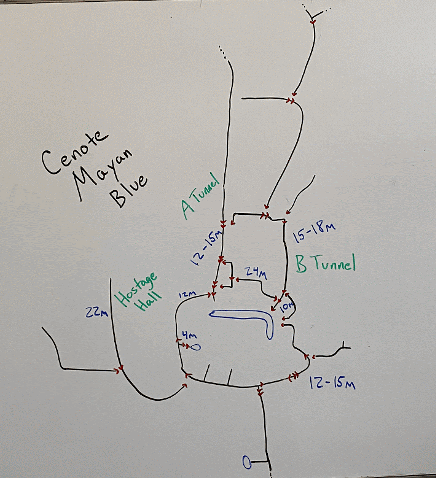 Cenote
Mayan
Blue
A Tunnel
12-15m
15-18m
B Tunnel
24m
Hostage
Hall
22m
12m
10m
4m
12-15m